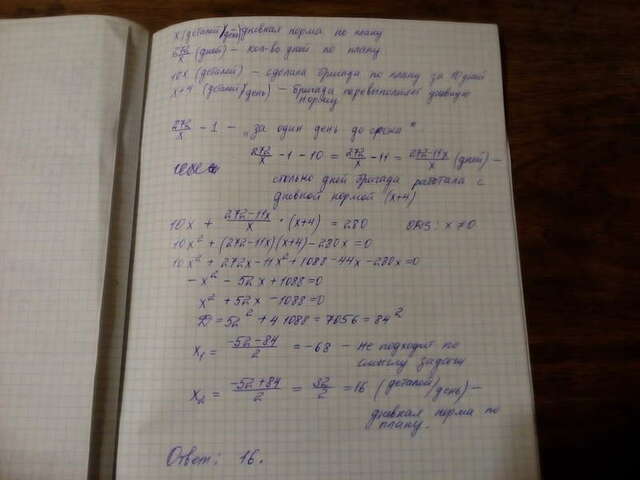 x (деталей/день) – дневная норма по плану
272/x (дней) – кол-во дней по плану
10x (деталей) – сделала бригада по плану за 10 дней
x+4 (деталей/день) – бригада перевыполняет дневную
норму
272/x - 1 – "за один день до срока"
272/x - 1 - 10 = 272/x - 11 = (272-11x)/x (дней) –
столько дней бригада работала с
дневной нормой (x+4)
10x + (272-11x)/x · (x+4) = 280 ОДЗ: x≠0
10x² + (272-11x)(x+4) - 280x = 0
10x² + 272x - 11x² + 1088 - 44x - 280x = 0
-x² - 52x + 1088 = 0
x² + 52x - 1088 = 0
D = 52² + 4·1088 = 7056 = 84²
x₁ = (-52-84)/2 = -68 – не подходит по
смыслу задачи
x₂ = (-52+84)/2 = 32/2 = 16 (деталей/день) –
дневная норма по
плану.
Ответ: 16.